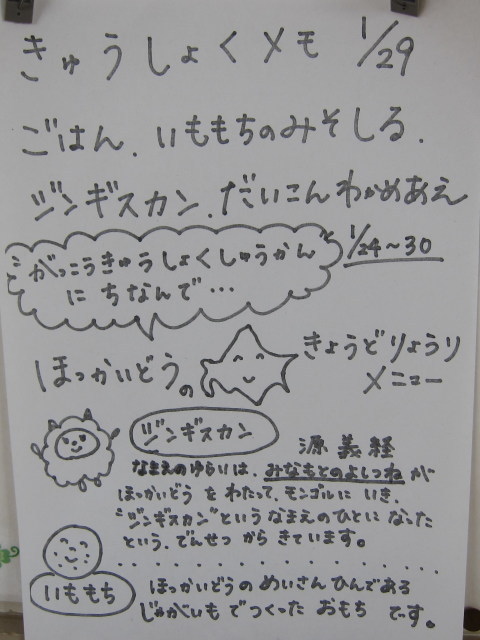 きゅうしょくメモ 1/29
ごはん、いももちのみそしる、
ジンギスカン、だいこんわかめあえ
"がっこうきゅうしょくしゅうかん"
にちなんで… 1/24~30
ほっかいどうの きょうどりょうり
メニュー
ジンギスカン
源義経
なまえのゆらいは、みなもとのよしつねが
ほっかいどうをわたって、モンゴルにいき、
"ジンギスカン"というなまえのひとになった
という、でんせつからきています。
いももち
ほっかいどうのめいさんひんである
じゃがいもでつくったおもちです。